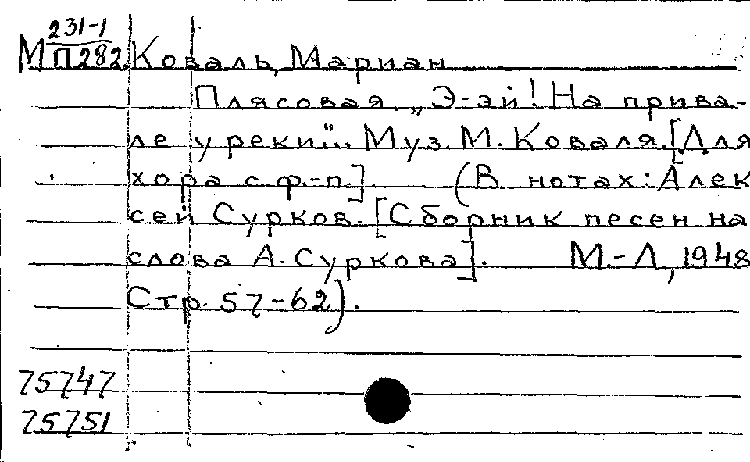 231-1
М П282 Коваль, Мариан
Плясовая. „Э-эй! На прива-
ле у реки..." Муз. М. Коваля. [Для
хора с ф.-п.]. (В нотах: Алек
сей Сурков. [Сборник песен на
слова А. Суркова]. М.-Л, 1948
Стр. 57-62).
75747
75751